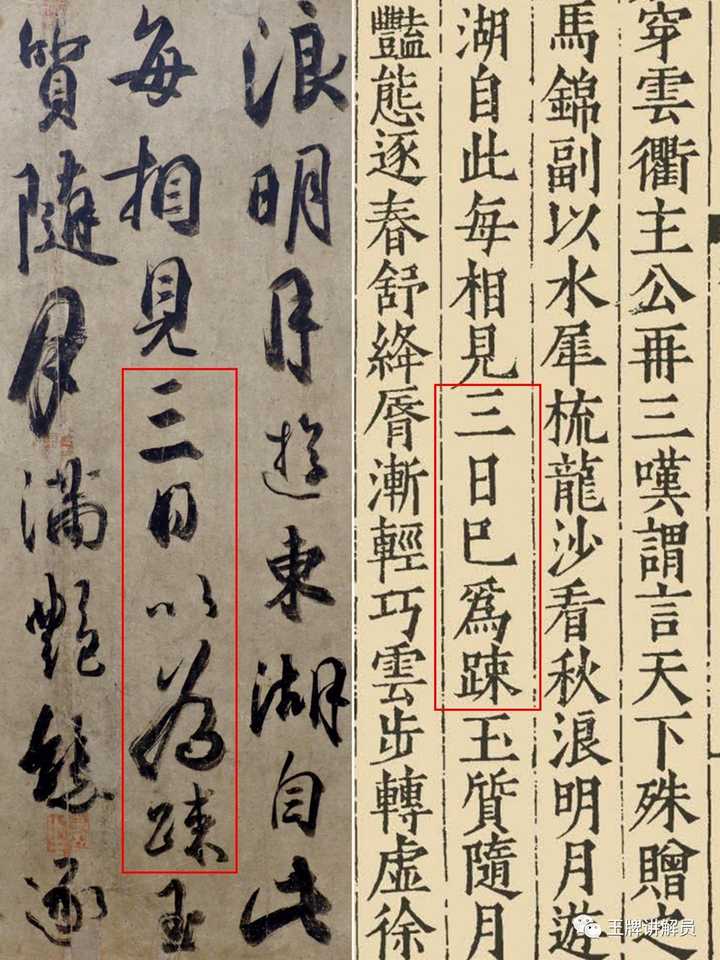 浪明月遊東湖自此
每相見三日以為踈玉
質隨月滿艷態逐
穿雲衢主公再三嘆謂言天下殊贈之
馬錦副以水犀梳龍沙看秋浪明月遊
湖自此每相見三日巳爲踈玉質隨月
豔態逐春舒絳脣漸輕巧雲步轉虛徐
王牌讲解员